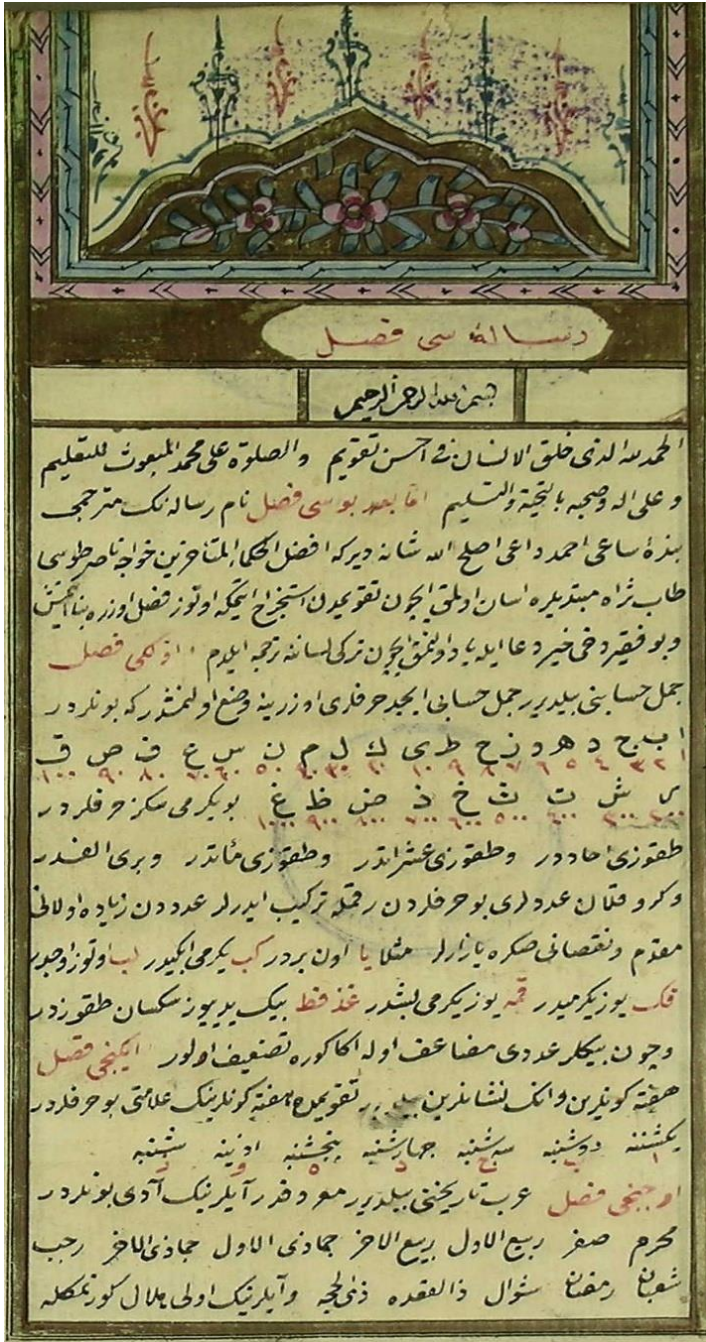 رسالهٔ سی فصل
بسم الله الرحمن الرحیم
الحمد لله الذی خلق الانسان فی احسن تقویم والصلوة علی محمد المبعوث للتعلیم
و علی اله وصحبه بالتحیة والتسلیم اما بعد بو سی فصل نام رساله نک مترجمی
بندهٔ ساعی احمد داعی اصلح الله شانه دیرکه افضل الحکماء المتأخرین خواجه ناصر طوسی
طاب ثراه مبتدیلره اسان اولمق ایچون تقویمدن استخراج ایتمکه اوتوز فصل اوزره بنا ایتمش
وبو فقیر دخی خیر دعا ایله یاد اولنمق ایچون ترکی لسانه ترجمه ایلدم اولکی فصل
جمل حسابنی بیلدیرر جمل حسابی ابجد حرفلری اوزرینه وضع اولنمشدر که بونلردر
ا ب ج د ه و ز ح ط ی ك ل م ن س ع ف ص ق
۱ ۲ ۳ ٤ ٥ ٦ ۷ ۸ ۹ ۱۰ ۲۰ ۳۰ ٤۰ ٥۰ ٦۰ ۷۰ ۸۰ ۹۰ ۱۰۰
ر ش ت ث خ ذ ض ظ غ بو یکرمی سکز حرفلردر
۲۰۰ ۳۰۰ ٤۰۰ ٥۰۰ ٦۰۰ ۷۰۰ ۸۰۰ ۹۰۰ ۱۰۰۰
طقوزی احاددر وطقوزی عشراتدر وطقوزی مأتدر وبری الفدر
وکرو قلان عددلری بو حرفلردن رقمله ترکیب ایدرلر عدددن زیاده اولانی
مقدم ونقصانی صکره یازارلر مثلا یا اون بردر کب یکرمی ایکیدر لب اوتوز
قک یوز یکرمیدر قکه یوز یکرمی بشدر غذفط بیک یدیوز سکسان طقوزدر
وچون بیکلر عددی مضاعف اوله اکا کوره تضعیف اولور ایکنجی فصل
هفته کونلرین وانک نشانلرین بیلدیرر تقویمده هفته کونلرینک علامتی بو حرفلردر
یکشنبه دوشنبه سه شنبه چهارشنبه پنجشنبه ادینه شنبه
ا ب ج د ه و ز
اوچنجی فصل عرب تاریخنی بیلدیرر معروفدر آیلرینک آدی بونلردر
محرم صفر ربیع الاول ربیع الاخر جماذی الاول جماذی الاخر رجب
شعبان رمضان شوال ذالقعده ذی الحجه و آیلرینک اولی هلال کورنمکله